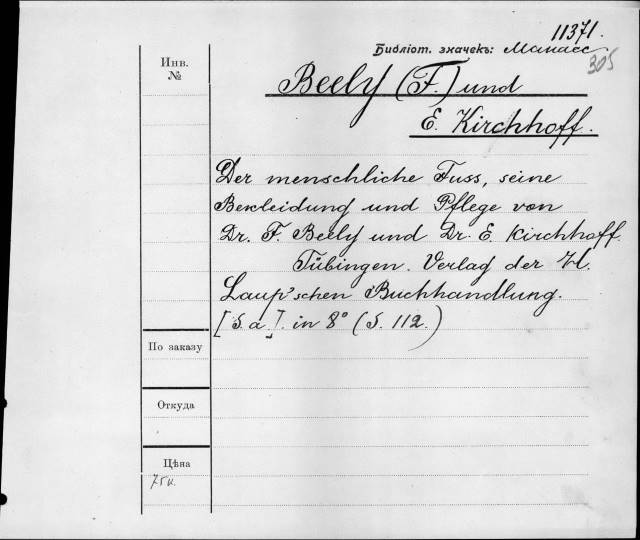 11371.
Библіот. значекъ: Манасс
305
Инв.
№
Beely (F.) und
E. Kirchhoff.
Der menschliche Fuss, seine
Bekleidung und Pflege von
Dr. F. Beely und Dr. E. Kirchhoff.
Tübingen. Verlag der H.
Laup'schen Buchhandlung.
[S. a.]. in 8° (S. 112.)
По заказу
Откуда
Цѣна
75к.